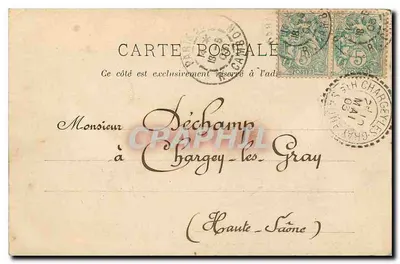 CARTE POSTALE
Ce côté est exclusivement réservé à l'ad
Monsieur Déchamp
à Chargey-les-Gray
(Haute-Saône)
CRAPHIL
5
5
MAI